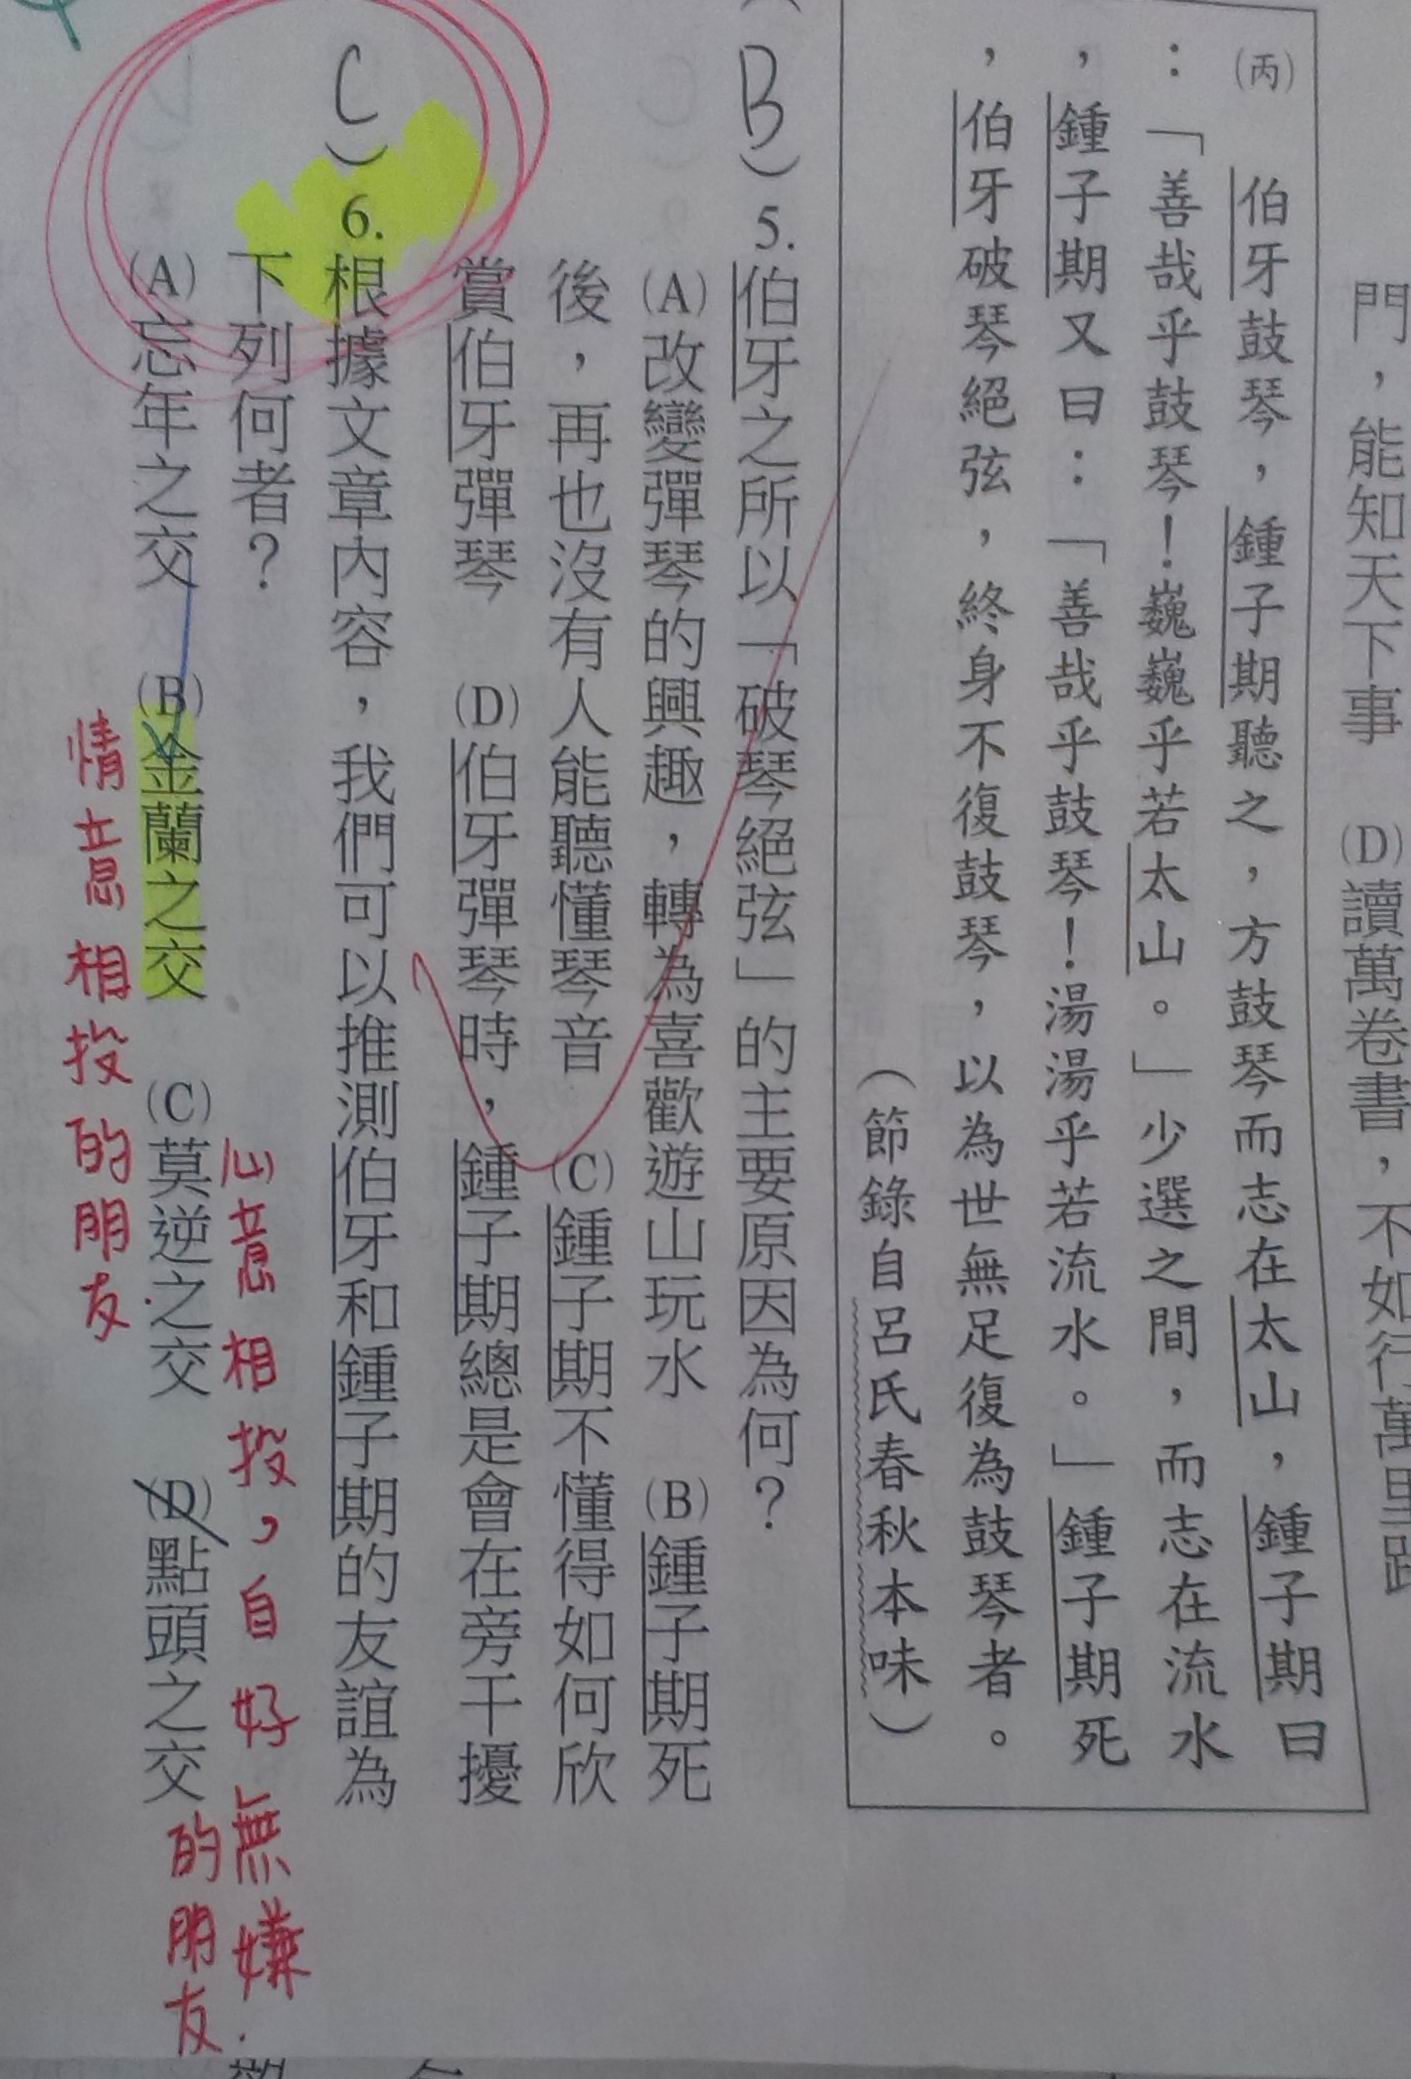 門，能知天下事　(D)讀萬卷書，不如行萬里路
(丙)　伯牙鼓琴，鍾子期聽之，方鼓琴而志在太山，鍾子期曰
：「善哉乎鼓琴！巍巍乎若太山。」少選之間，而志在流水
，鍾子期又曰：「善哉乎鼓琴！湯湯乎若流水。」鍾子期死
，伯牙破琴絕弦，終身不復鼓琴，以為世無足復為鼓琴者。
（節錄自呂氏春秋本味）
B）5.伯牙之所以「破琴絕弦」的主要原因為何？
(A)改變彈琴的興趣，轉為喜歡遊山玩水　(B)鍾子期死
後，再也沒有人能聽懂琴音　(C)鍾子期不懂得如何欣
賞伯牙彈琴　(D)伯牙彈琴時，鍾子期總是會在旁干擾
C）6.根據文章內容，我們可以推測伯牙和鍾子期的友誼為
下列何者？
心意相投，自好無嫌
的朋友
(A)忘年之交　(B)金蘭之交　(C)莫逆之交　(D)點頭之交
情意相投的朋友